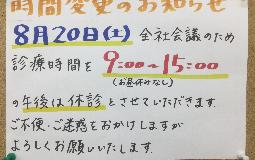 時間変更のお知らせ
8月20日(土) 全社会議のため
診療時間を 9:00~15:00
(お昼休みなし)
の午後は休診とさせていただきます
ご不便・ご迷惑をおかけしますが
よろしくお願いいたします.